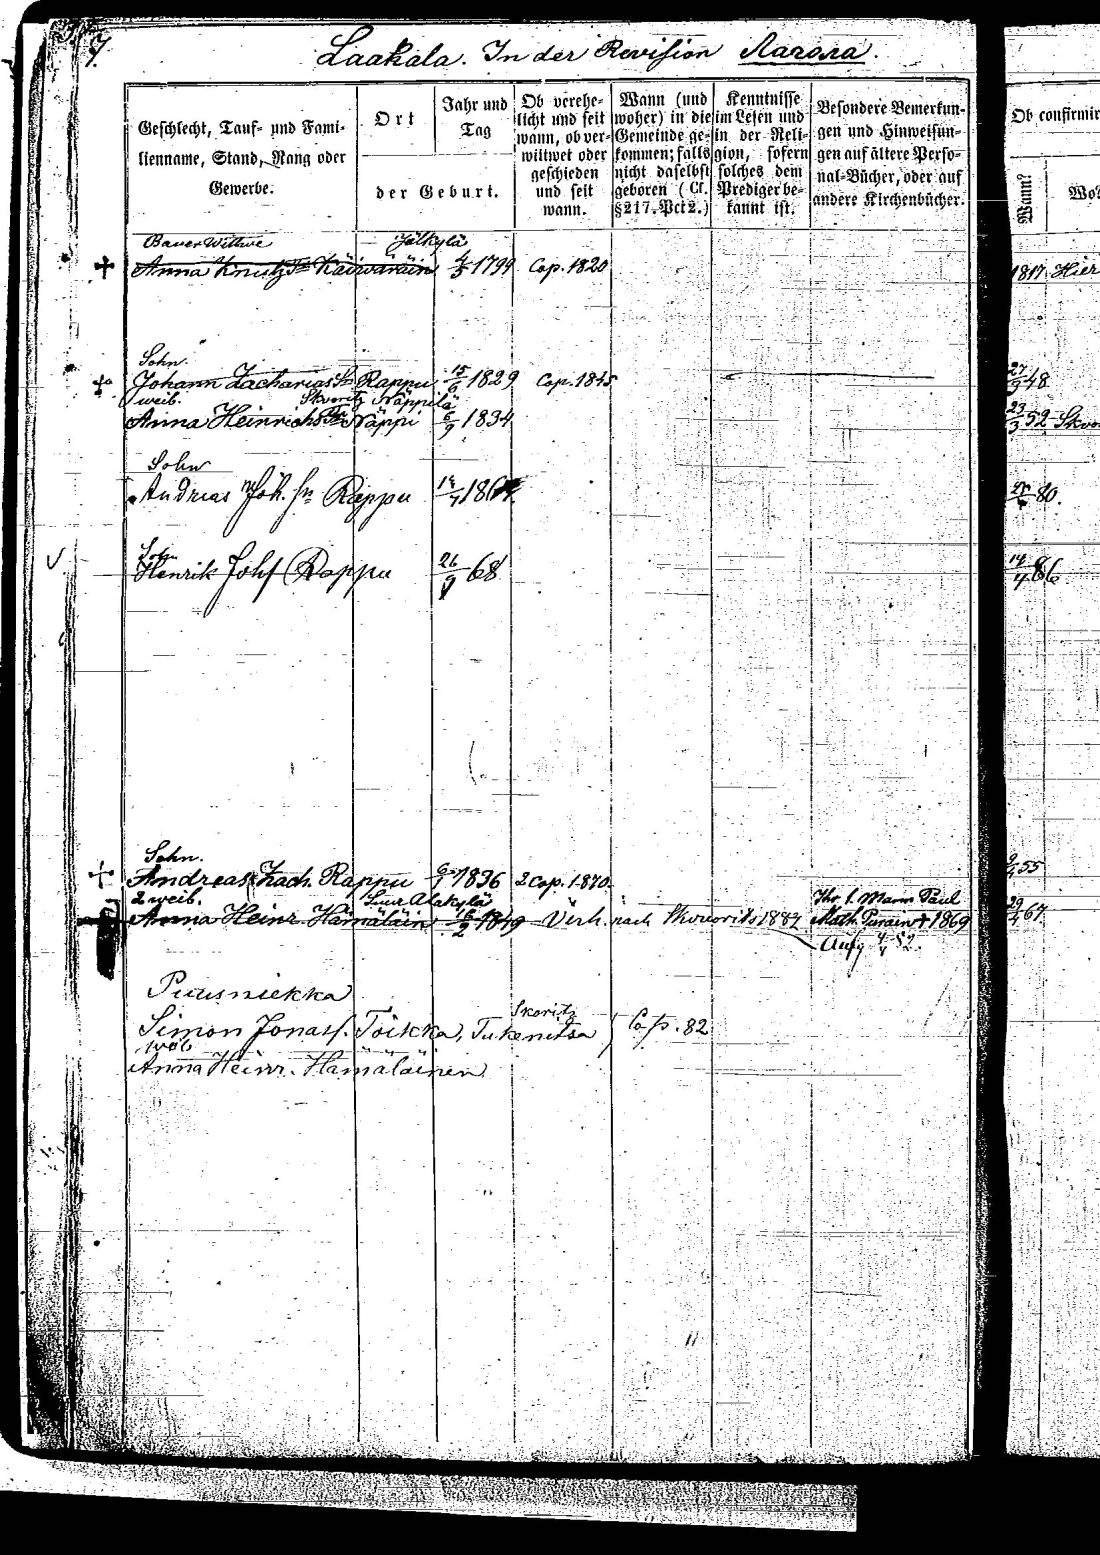 7.
Laakala. In der Revision Лагола.
Geschlecht, Tauf- und Fami-
lienname, Stand, Rang oder
Gewerbe.
Ort
Jahr und
Tag
der Geburt.
Ob verehe-
licht und seit
wann, ob ver-
wittwet oder
geschieden
und seit
wann.
Wann (und
woher) in die
Gemeinde ge-
kommen; falls
nicht daselbst
geboren (Cf.
§ 217. Pct 2.)
Kenntnisse
im Lesen und
in der Reli-
gion, sofern
solches dem
Prediger be-
kannt ist.
Besondere Bemerkun-
gen und Hinweisun-
gen auf ältere Perso-
nal-Bücher, oder auf
andere Kirchenbücher.
Ob confirmir
Wann?
Wo
Bauer Wittwe Jälkylä
Anna 4/3 1799 Cop. 1820 1817 Hier
Sohn.
Johann Zacharias Sn Rappu 15/6 1829 Cop. 1845 27/3 48
weib. Skvoritz Näppilä
Anna Heinrichs Tr Näppi 6/9 1834 23/3 52 Skvo
Sohn
Andreas Joh. Sn Rappu 14/7 186 80.
Sohn
Henrik Johs Rappu 26/9 68 14/4 86
Sohn.
Andreas Zach. Rappu 6/1 1836 2 Cop. 1870. 55
2 weib. Suur Alakylä Ihr 1. Mann Paul
Anna Heinr. Hämäläin 16/2 1849 Verh. nach Skvorits 1882 Math. Purain + 1869 29/4 67.
Aufg 4/4 82.
Puusniekka
Skoritz
Simon Jonass. Töikka, Tukenitsa } Cop. 82
weib
Anna Heinr. Hämäläinen